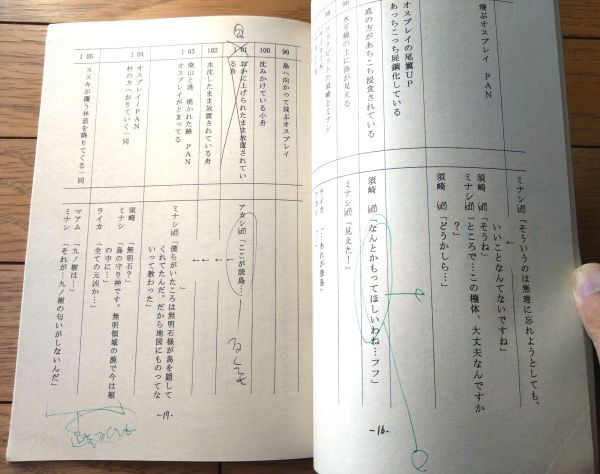 飛ぶオスプレイ PAN
オスプレイの尾翼UP
あっちこっち屍鋼化している
底の方があちこち浸食されている
96
水平線の上に島が見える
98
コクピットの須崎とミナシ
ミナシ「そういうのは無理に忘れようとしても、
いいことなんてないですね」
須崎「そうね」
ミナシ「ところで…この機体、大丈夫なんですか
?」
須崎「どうかしら…」
須崎「なんとかもってほしいわね…フフ」
ミナシ「見えた!」
ライカ「…あれが骸島…
-16-
99 島へ向かって飛ぶオスプレイ
100 沈みかけている小舟
101 おかに上げられたまま放置されてい
る舟
102 水沈したまま放置されている舟
103 廃山と港 焼かれた跡 PAN
オスプレイがとまってる
104 オスプレイ/PAN
村の方へおりていく一同
105 ススキが覆う林道を降りてくる一同
アカシ「ここが骸島…
」
ミナシ「僕らがいたころは無明石様が島を隠して
くれてたんだ。だから地図にものってな
いって教わった」
須崎「無明石?」
ミナシ「島の守り神です。無明領域の源で今は躯
の中に…」
ライカ「全ての元凶か…」
マアム「九ノ樹は…」
ミナシ「それが…九ノ樹の匂いがしないんだ」
-17-